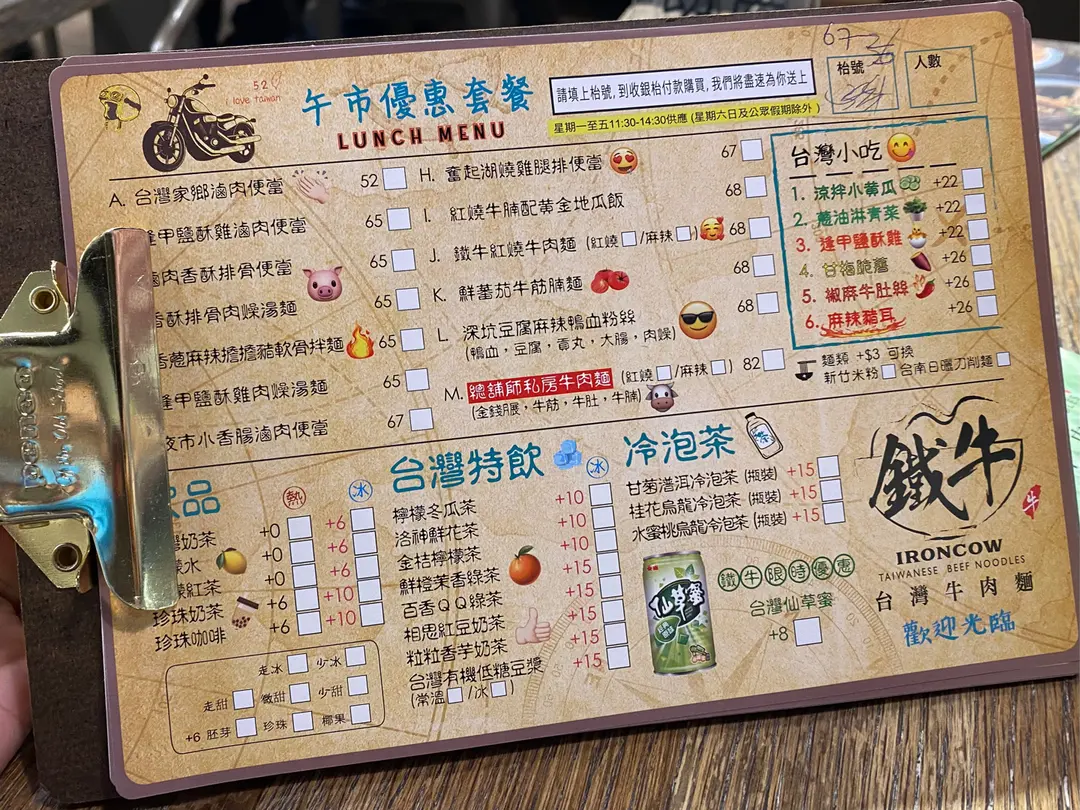 52♡
I love taiwan
午市優惠套餐
LUNCH MENU
請填上枱號, 到收銀枱付款購買, 我們將盡速為你送上
星期一至五11:30-14:30供應 (星期六日及公眾假期除外)
67
枱號
人數
A. 台灣家鄉滷肉便當 52
逢甲鹽酥雞滷肉便當 65
滷肉香酥排骨便當 65
香酥排骨肉燥湯麵 65
香蔥麻辣擔擔豬軟骨拌麵 65
逢甲鹽酥雞肉燥湯麵 65
夜市小香腸滷肉便當 67
H. 奮起湖燒雞腿排便當 67
I. 紅燒牛腩配黃金地瓜飯 68
J. 鐵牛紅燒牛肉麵 (紅燒/麻辣) 68
K. 鮮蕃茄牛筋腩麵 68
L. 深坑豆腐麻辣鴨血粉絲 68
(鴨血，豆腐，貢丸，大腸，肉燥)
M. 總舖師私房牛肉麵 (紅燒/麻辣) 82
(金錢𦟌，牛筋，牛肚，牛腩)
台灣小吃
1. 涼拌小黃瓜 +22
2. 蔥油淋青菜 +22
3. 逢甲鹽酥雞 +22
4. 甘梅脆薯 +26
5. 椒麻牛肚絲 +26
6. 麻辣豬耳 +26
麵類 +$3 可換
新竹米粉 台南日曬刀削麵
飲品
熱 冰
奶茶 +0 +6
水 +0 +6
紅茶 +0 +6
珍珠奶茶 +6 +10
珍珠咖啡 +6 +10
走冰 少冰
走甜 微甜 少甜
+6 胚芽 珍珠 椰果
台灣特飲
冰
檸檬冬瓜茶 +10
洛神鮮花茶 +10
金桔檸檬茶 +10
鮮橙茉香綠茶 +15
百香QQ綠茶 +15
相思紅豆奶茶 +15
粒粒香芋奶茶 +15
台灣有機低糖豆漿 +15
(常溫/冰)
冷泡茶
甘菊普洱冷泡茶 (瓶裝) +15
桂花烏龍冷泡茶 (瓶裝) +15
水蜜桃烏龍冷泡茶 (瓶裝) +15
仙草蜜
鐵牛限時優惠
台灣仙草蜜
+8
鐵牛
IRONCOW
TAIWANESE BEEF NOODLES
台灣牛肉麵
歡迎光臨